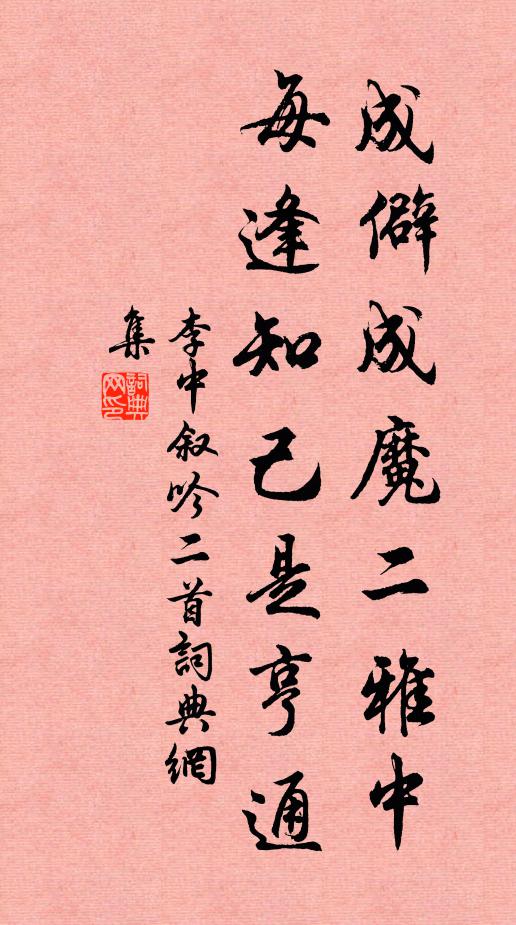 成僻成魔二雅中
每逢知己是亨通
李中叙吟二首詞典網
集
詞典网印